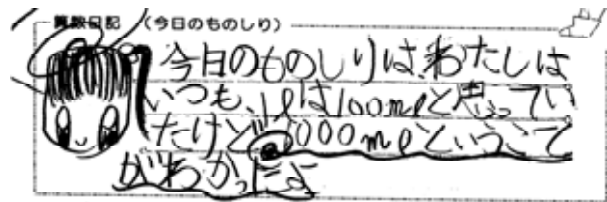 算数日記 (今日のものしり)
今日のものしりは、わたしは
いつも、1ℓは100mℓと思ってい
たけど1000mℓということ
がわかったよ